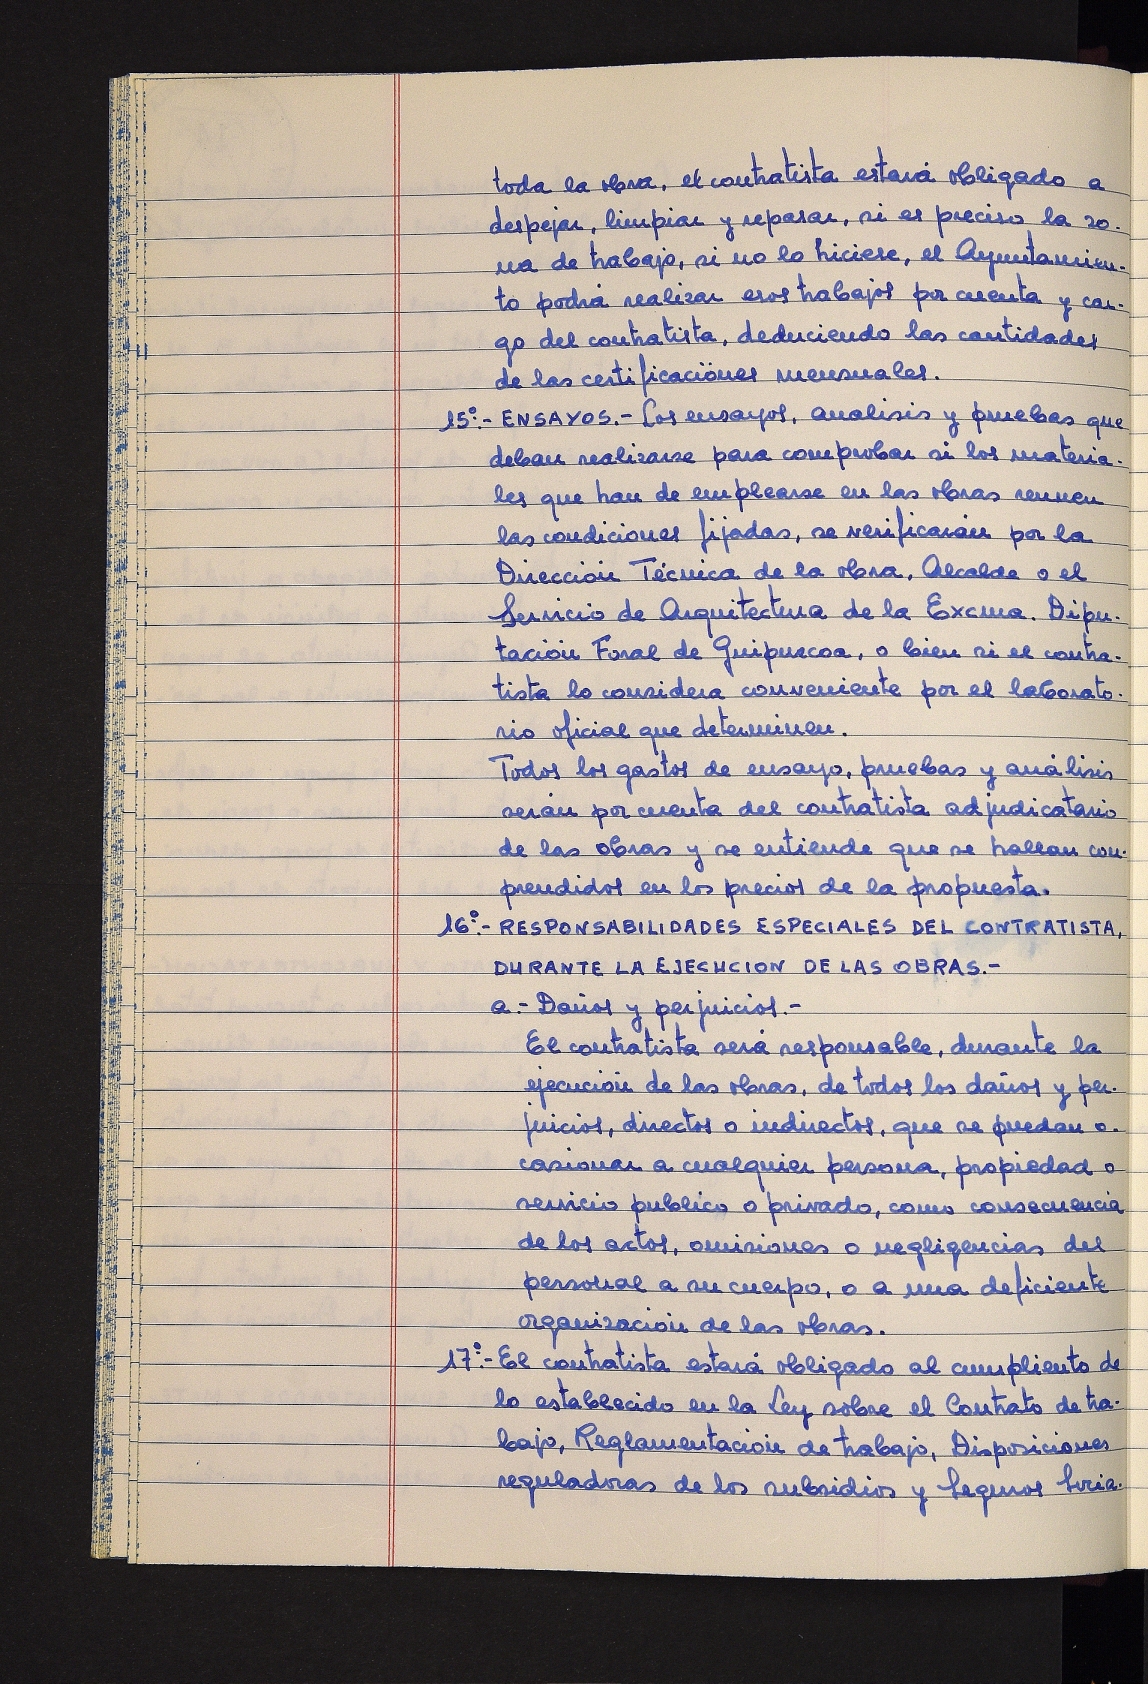 toda la obra, el contratista estará obligado a
despejar, limpiar y reparar, si es preciso la zo-
na de trabajo, si no lo hiciese, el Ayuntamien-
to podrá realizar esos trabajos por cuenta y car-
go del contratista, deduciendo las cantidades
de las certificaciones mensuales.
15º.- ENSAYOS.- Los ensayos, analisis y pruebas que
deban realizarse para comprobar si los materia-
les que han de emplearse en las obras reunen
las condiciones fijadas, se verificarán por la
Dirección Técnica de la obra, Alcalde o el
Servicio de Arquitectura de la Excma. Dipu-
tación Foral de Guipuzcoa, o bien si el contra-
tista lo considera conveniente por el laborato-
rio oficial que determinen.
Todos los gastos de ensayo, pruebas y análisis
serán por cuenta del contratista adjudicatario
de las obras y se entiende que se hallan com-
prendidos en los precios de la propuesta.
16º.- RESPONSABILIDADES ESPECIALES DEL CONTRATISTA,
DURANTE LA EJECUCION DE LAS OBRAS.-
a.- Daños y perjuicios.-
El contratista será responsable, durante la
ejecución de las obras, de todos los daños y per-
juicios, directos o indirectos, que se puedan o-
casionar a cualquier persona, propiedad o
servicio publico o privado, como consecuencia
de los actos, omisiones o negligencias del
personal a su cuerpo, o a una deficiente
organización de las obras.
17º.- El contratista estará obligado al cumpliento de
lo establecido en la Ley sobre el Contrato de tra-
bajo, Reglamentación de trabajo, Disposiciones
reguladoras de los subsidios y Seguros Socia-